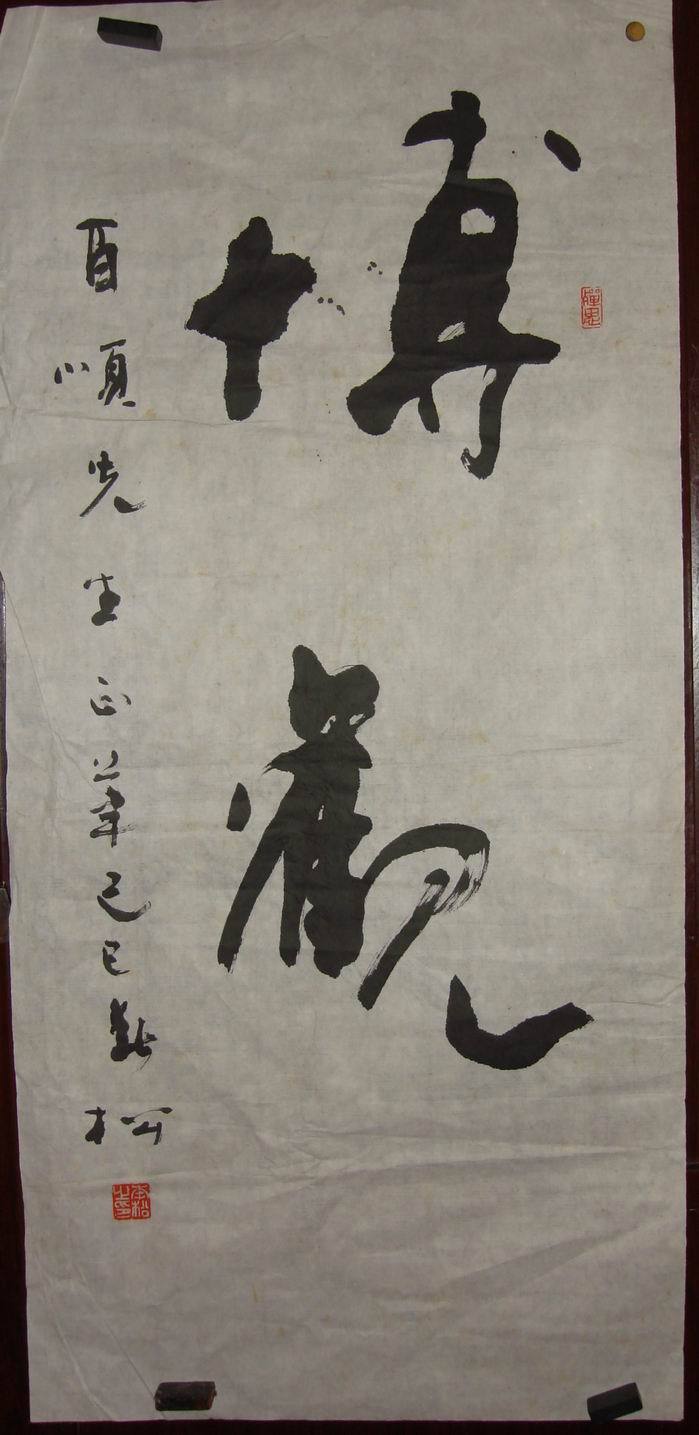 博觀
百順先生正己巳松